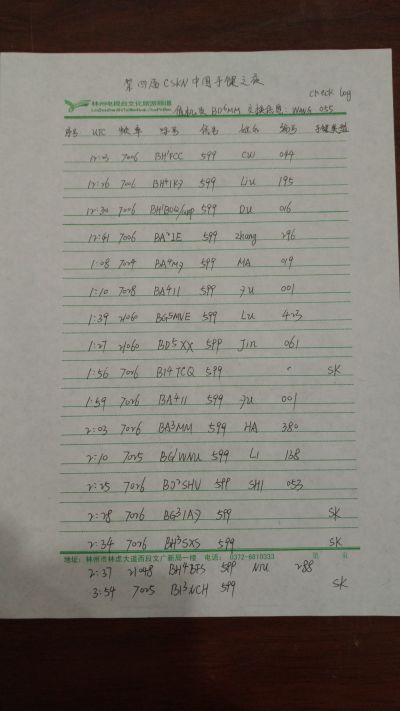 第四届CSKN中国手键之夜
check log
林州电视台文化旅游频道
值机员 BD6MM 交换信息: WANG 055
序号 UTC 频率 呼号 信号 姓名 编号 手键类型
12:03 7026 BH1FCC 599 CUI 044
12:26 7006 BH4IKJ 599 LIU 195
12:30 7006 599 DU 016
12:41 7006 BA7IE 599 zhang 296
1:08 7029 599 MA 019
1:10 7028 BA4II 599 YU 001
1:39 21060 BG5MVE 599 LU 423
1:27 21060 BD5XX 599 Jin 061
1:56 7026 BI4TCQ 599 SK
1:59 7026 BA4II 599 YU 001
2:03 7026 BA3MM 599 HA 380
2:10 7025 BG1WNU 599 LI 138
2:25 7026 BD2SHV 599 SHI 053
2:28 7026 BG3IAJ 599 SK
2:34 7026 BH3SXS 599 SK
地址：林州市林虑大道西段文广新局一楼 电话：0372-6810333 第 页
2:37 21048 BH4BFS 599 NIU 288
3:54 7025 BI3NCH 599 SK